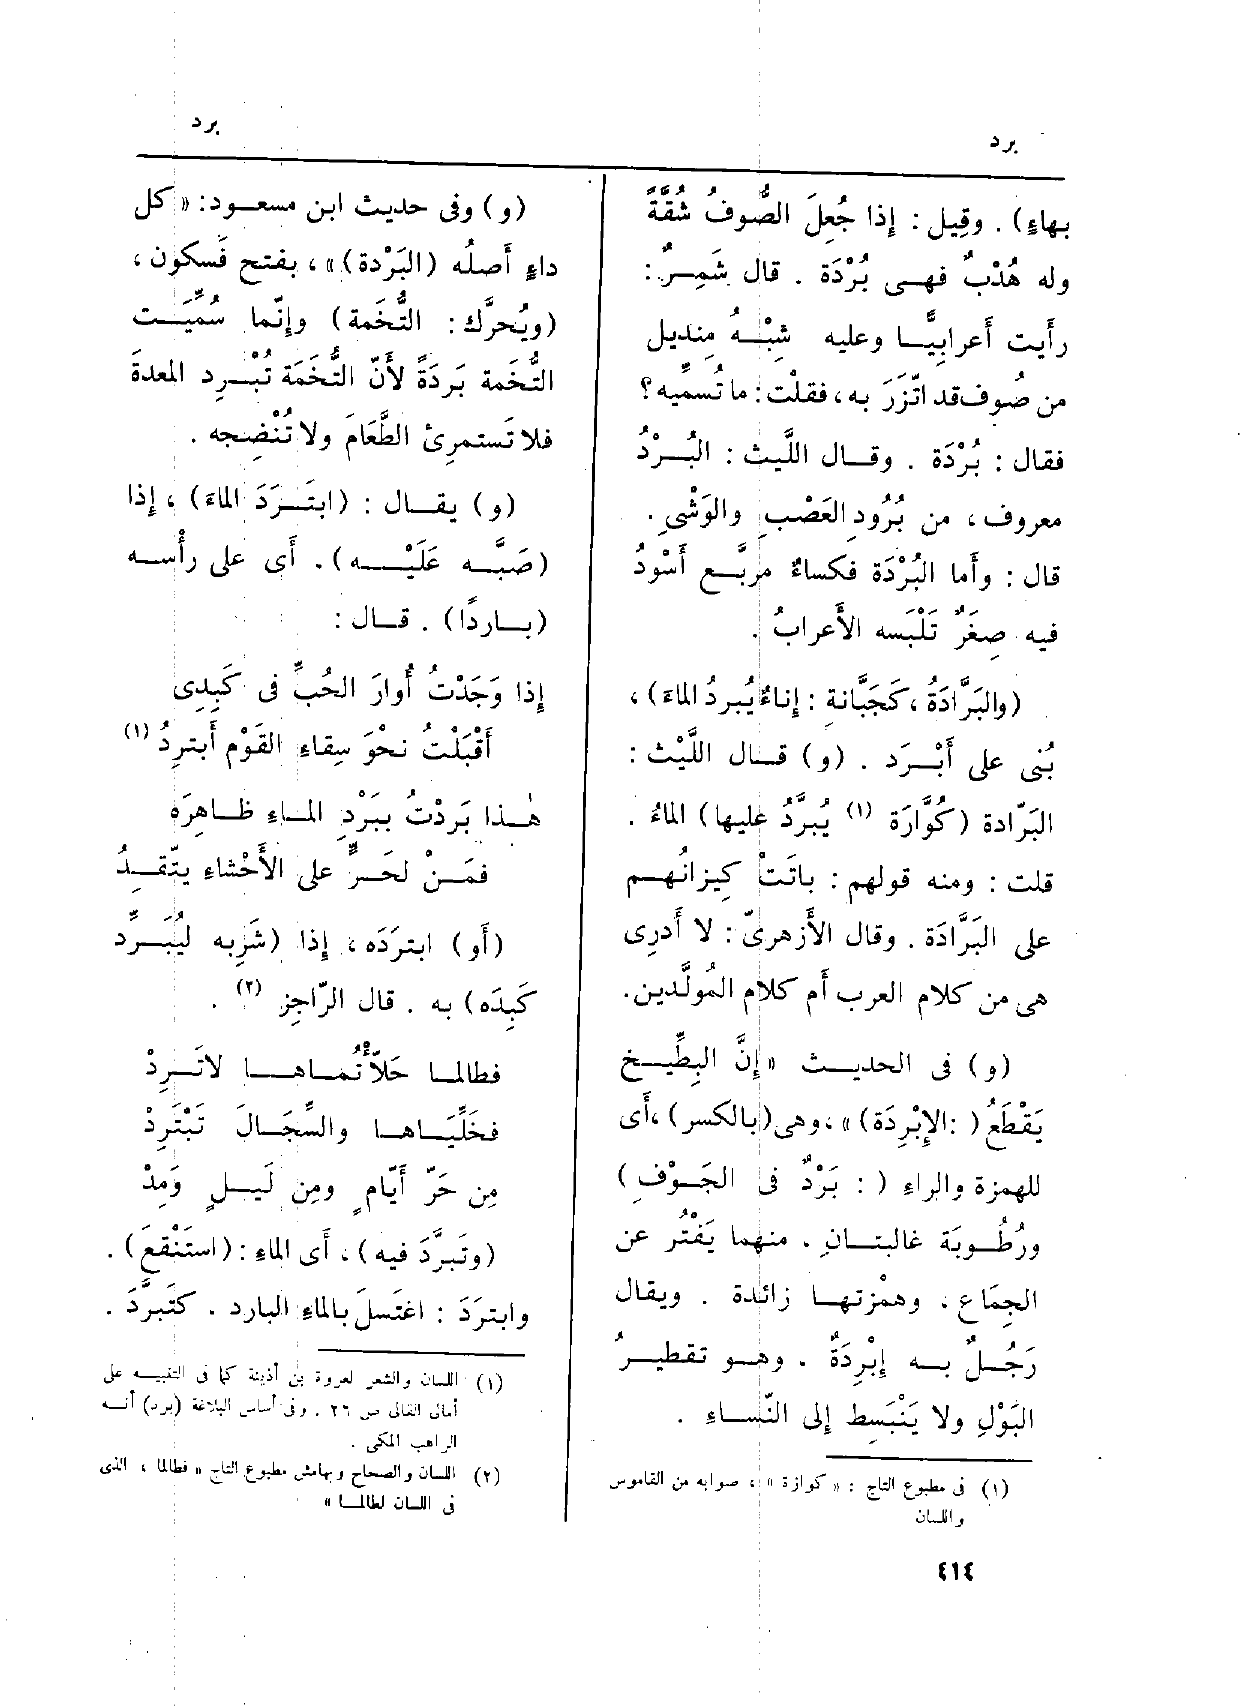 برد
برد
بهاءٍ) . وقِيل : إِذا جُعِلَ الصُّوفُ شُقَّةً
وله هُدْبٌ فهى بُرْدَة . قال شَمِرٌ :
رأَيت أَعرابيًّا وعليه شِبْهُ منديل
من صُوف قد اتّزَرَ به ، فقلْت : ما تُسمّيه ؟
فقال : بُرْدَة . وقال اللَّيث : البُرْدُ
معروف ، من بُرُودِ العَصْبِ والوَشْىِ .
قال : وأَما البُرْدَة فكساءٌ مربَّع أَسْودُ
فيه صِغَرٌ تَلْبَسه الأَعرابُ .
(والبَرَّادَةُ ، كَجَبَّانةٍ : إِناءٌ يُبرِدُ الماءَ) ،
بُنى على أَبْرَد . (و) قال اللَّيْث :
البَرّادة (كُوَّارَة (١) يُبرَّدُ عليها) الماءُ .
قلت : ومنه قولهم : باتَتْ كِيزانُهم
على البَرَّادَة . وقال الأَزهرىّ : لا أَدرِى
هى من كلام العرب أم كلام المُولَّدين .
(و) فى الحديث «إِنَّ البِطِّيخ
يَقْطَعُ ( : الإِبْرِدَة) » ، وهى (بالكسر) ، أى
للهمزة والراء ( : بَرْدٌ فى الجَوْفِ)
ورُطُوبَة غالبتانِ . منهما يَفْتُر عن
الجِمَاعِ ، وهمْزتها زائدة . ويقال
رَجُلٌ به إِبْرِدَةٌ . وهو تقطيرُ
البَوْلِ ولا يَنْبَسِط إلى النّساءِ .
(١) فى مطبوع التاج : « كوازة » ، صوابه من القاموس
واللسان
(و) وفى حديث ابن مسعود: « كل
داءٍ أَصلُه (البَرْدة) » ، بفتح فَسكون ،
(ويُحرَّك : التُّخَمة) وإِنّما سُمِّيت
التُّخَمة بَرَدَةً لأَنّ التُّخَمَة تُبْرِد المعدةَ
فلا تَستمرِئ الطَّعَام ولا تُنْضِجه .
(و) يقال : (ابتَرَدَ الماءَ) ، إذا
(صَبَّه عَلَيْه) . أى على رأْسه
(باردًا) . قال :
إِذا وَجَدْتُ أُوارَ الحُبِّ فى كَبِدِى
أَقْبَلْتُ نحْوَ سِقاءِ القَوْم أَبترِدُ (١)
هٰذا بَرَدْتُ ببَرْدِ الماءِ ظاهِرَه
فمَنْ لحَرٍّ على الأَحْشاءِ يتّقِدُ
(أَو) ابتَرَدَه ، إذا (شَرِبه ليُبَرِّد
كَبِدَه) به . قال الرّاجِز (٢) .
فطالما حَلّأْتُماها لاتَرِدْ
فخَلِّيَاها والسِّجَالَ تَبْتَرِدْ
مِن حَرّ أَيّامٍ ومِن لَيلٍ وَمِدْ
(وتَبرَّدَ فيه) ، أى الماءِ : (استَنْقعَ) .
وابترَدَ : اغتَسلَ بالماءِ البارد . كتَبرَّدَ .
(١) اللسان والشعر لعروة بن أذينة كما فى التنبيه على
أمالى القالى ص ٢٦ . وفى أساس البلاغة (برد) أنه
الراهب المكى .
(٢) اللسان والصحاح وبهامش مطبوع التاج « فطالما ، الذى
فى اللسان لطالما »
٤١٤